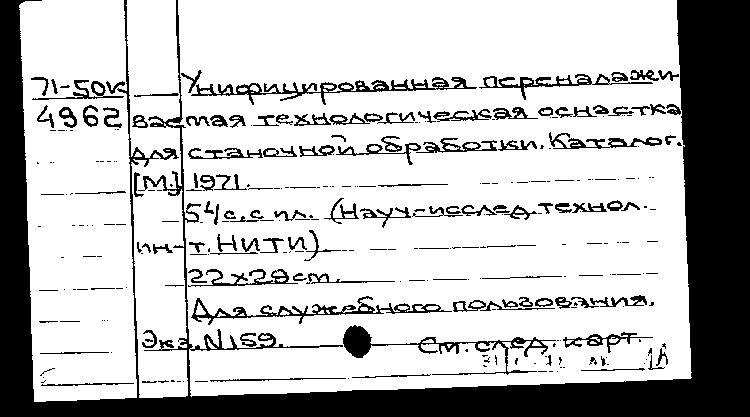 71-50к Унифицированная переналажи-
4962 ваемая технологическая оснастка
для станочной обработки. Каталог.
[М.] 1971.
54с. с ил. (Науч-исслед. технол.
ин-т. НИТИ).
22х29см.
Для служебного пользования.
Экз. N159. См. след. карт.
1А